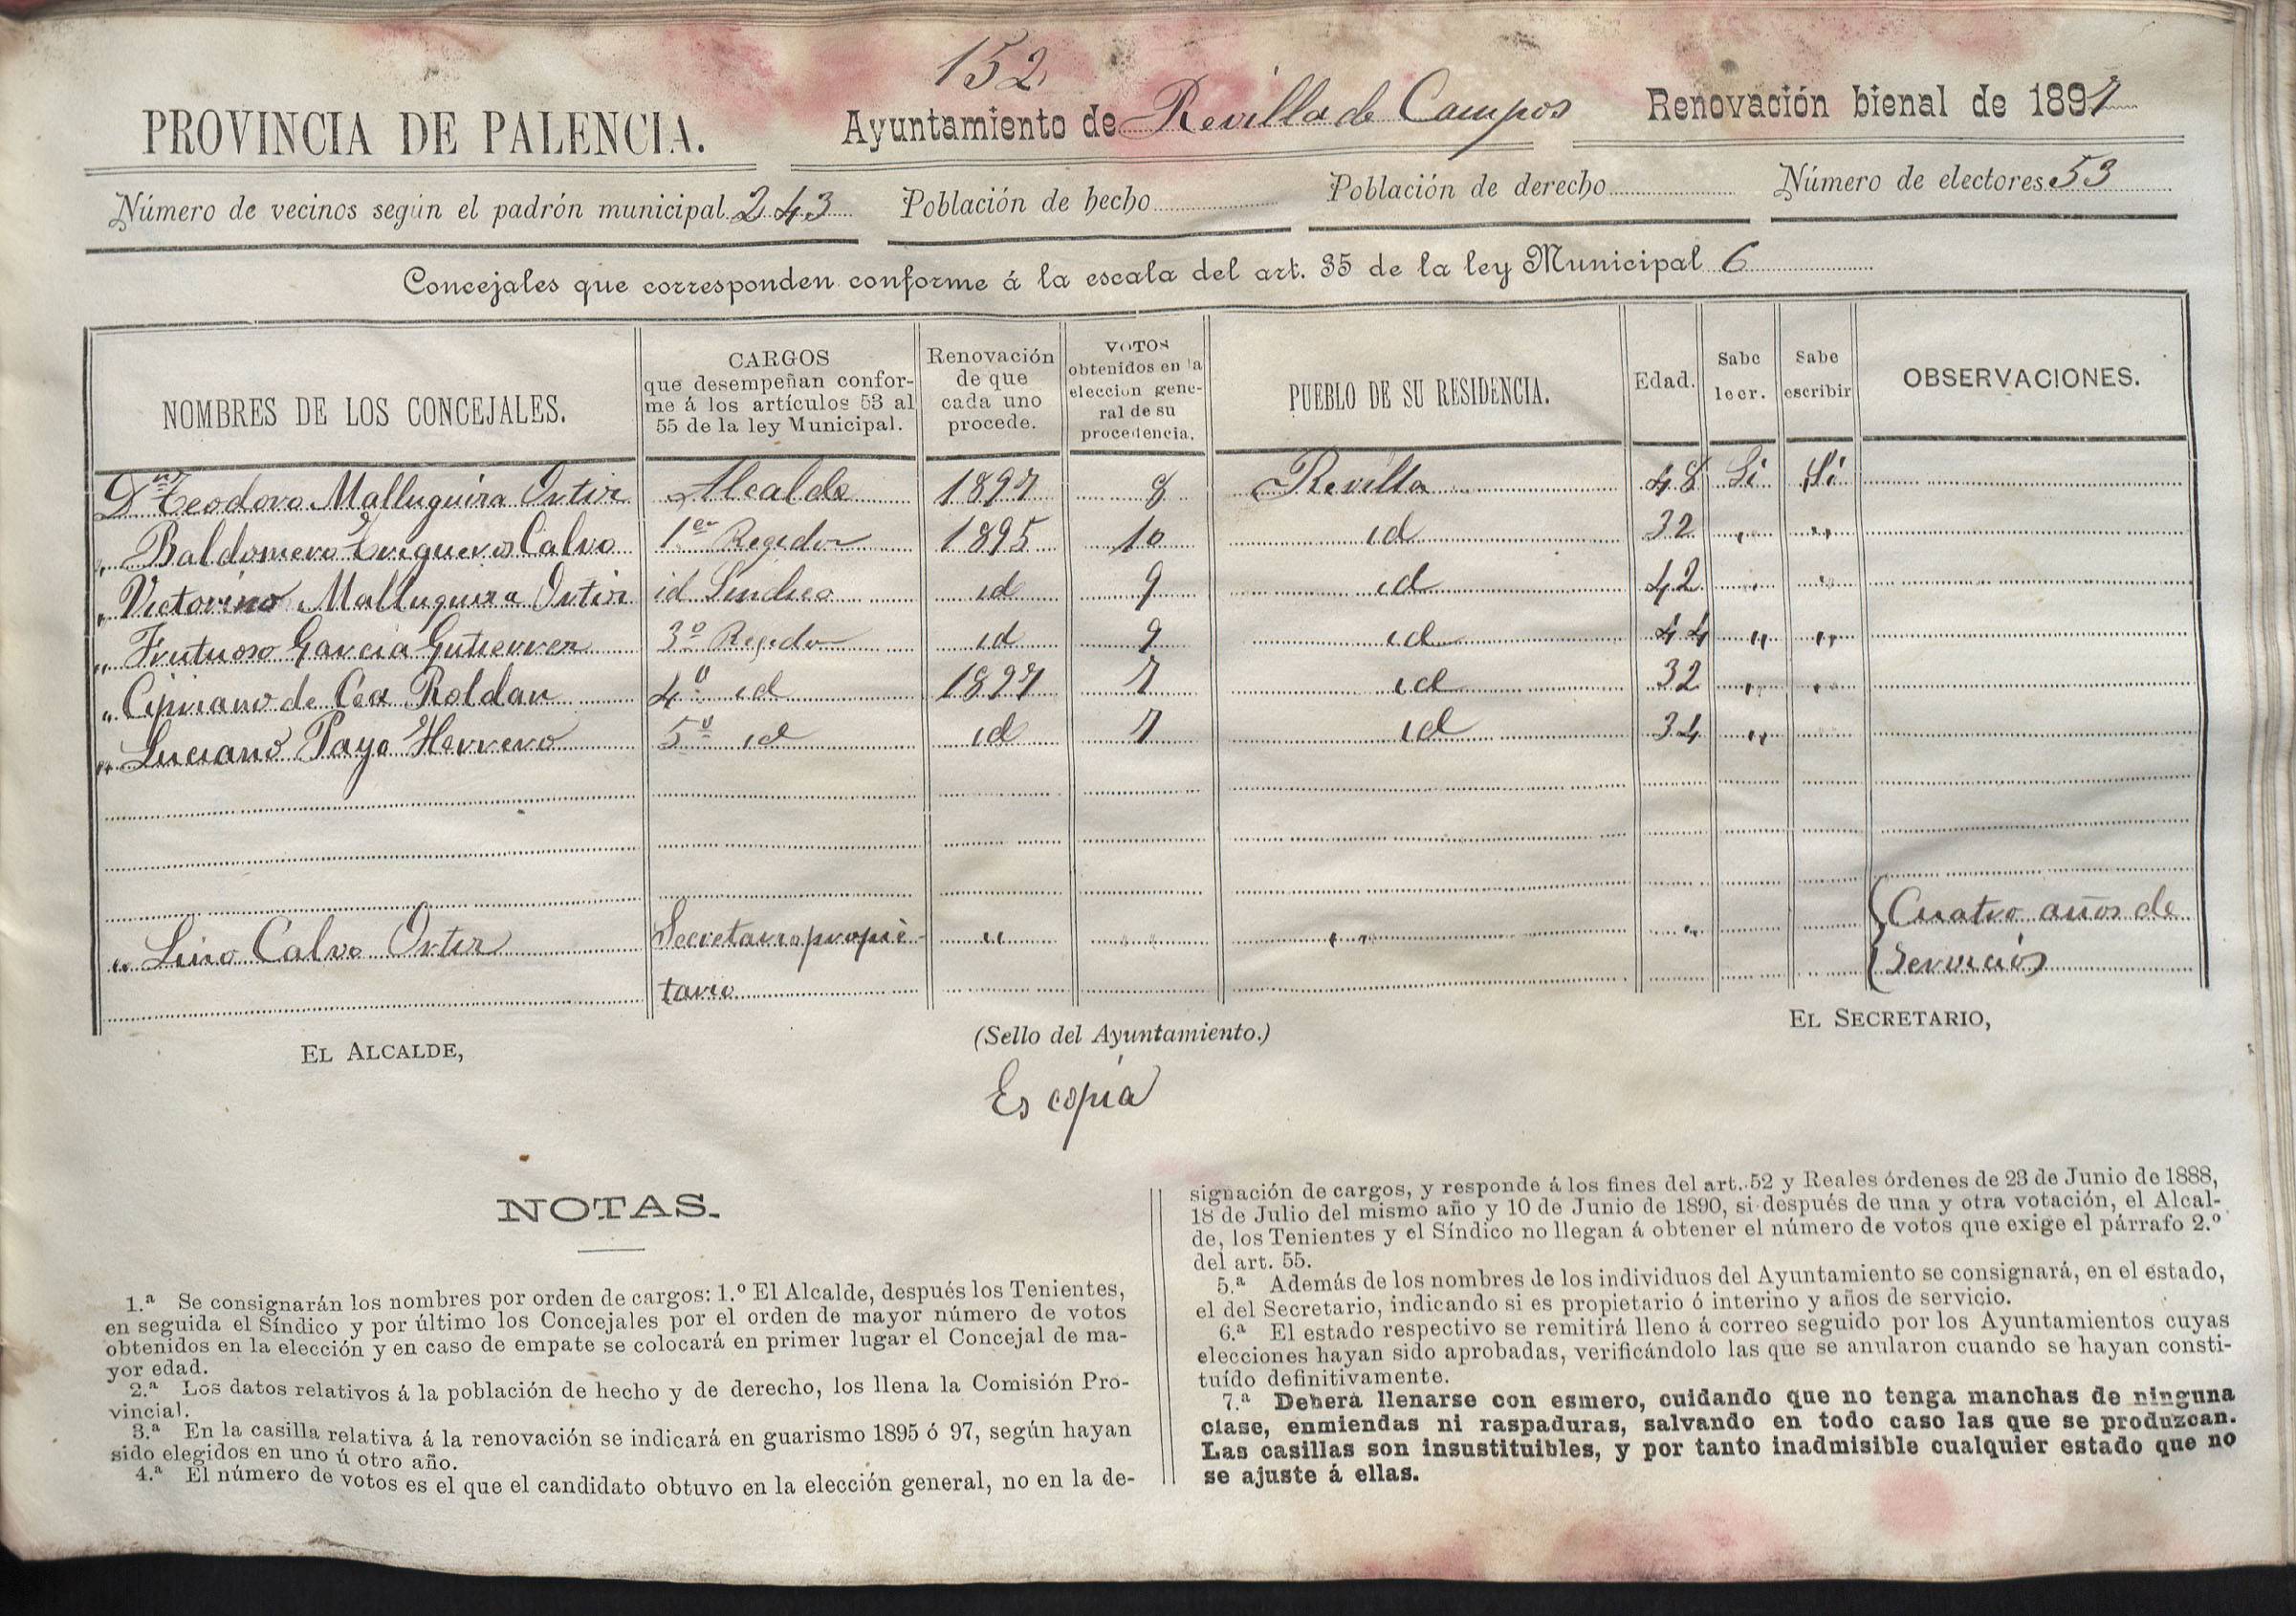 152
PROVINCIA DE PALENCIA.
Ayuntamiento de Revilla de Campos
Renovación bienal de 1897
Número de vecinos según el padrón municipal 243
Población de hecho
Población de derecho
Número de electores 53
Concejales que corresponden conforme á la escala del art. 35 de la ley Municipal 6
NOMBRES DE LOS CONCEJALES.
CARGOS
que desempeñan confor-
me á los artículos 53 al
55 de la ley Municipal.
Renovación
de que
cada uno
procede.
VOTOS
obtenidos en la
elección gene-
ral de su
procedencia.
PUEBLO DE SU RESIDENCIA.
Edad.
Sabe
leer.
Sabe
escribir
OBSERVACIONES.
Dn Teodoro Malluguiza Ortiz Alcalde 1897 8 Revilla 48 Si Si
" Baldomero Trigueros Calvo 1er Regidor 1895 10 id 32 " "
" Victorino Malluguiza Ortiz id Sindico id 9 id 42 " "
" Frutuoso Garcia Gutierrez 3º Regidor id 9 id 44 " "
" Cipriano de Cea Roldan 4º id 1897 7 id 32 " "
" Luciano Payo Herrero 5º id id 7 id 34 " "
" Lino Calvo Ortiz Secretario propie- " " " " " Cuatro años de
tario servicios
EL ALCALDE,
(Sello del Ayuntamiento.)
EL SECRETARIO,
Es copia
NOTAS.
1.ª Se consignarán los nombres por orden de cargos: 1.º El Alcalde, después los Tenientes,
en seguida el Síndico y por último los Concejales por el orden de mayor número de votos
obtenidos en la elección y en caso de empate se colocará en primer lugar el Concejal de ma-
yor edad.
2.ª Los datos relativos á la población de hecho y de derecho, los llena la Comisión Pro-
vincial.
3.ª En la casilla relativa á la renovación se indicará en guarismo 1895 ó 97, según hayan
sido elegidos en uno ú otro año.
4.ª El número de votos es el que el candidato obtuvo en la elección general, no en la de-
signación de cargos, y responde á los fines del art. 52 y Reales órdenes de 23 de Junio de 1888,
18 de Julio del mismo año y 10 de Junio de 1890, si después de una y otra votación, el Alcal-
de, los Tenientes y el Síndico no llegan á obtener el número de votos que exige el párrafo 2.º
del art. 55.
5.ª Además de los nombres de los individuos del Ayuntamiento se consignará, en el estado,
el del Secretario, indicando si es propietario ó interino y años de servicio.
6.ª El estado respectivo se remitirá lleno á correo seguido por los Ayuntamientos cuyas
elecciones hayan sido aprobadas, verificándolo las que se anularon cuando se hayan consti-
tuído definitivamente.
7.ª Deberá llenarse con esmero, cuidando que no tenga manchas de ninguna
clase, enmiendas ni raspaduras, salvando en todo caso las que se produzcan.
Las casillas son insustituibles, y por tanto inadmisible cualquier estado que no
se ajuste á ellas.